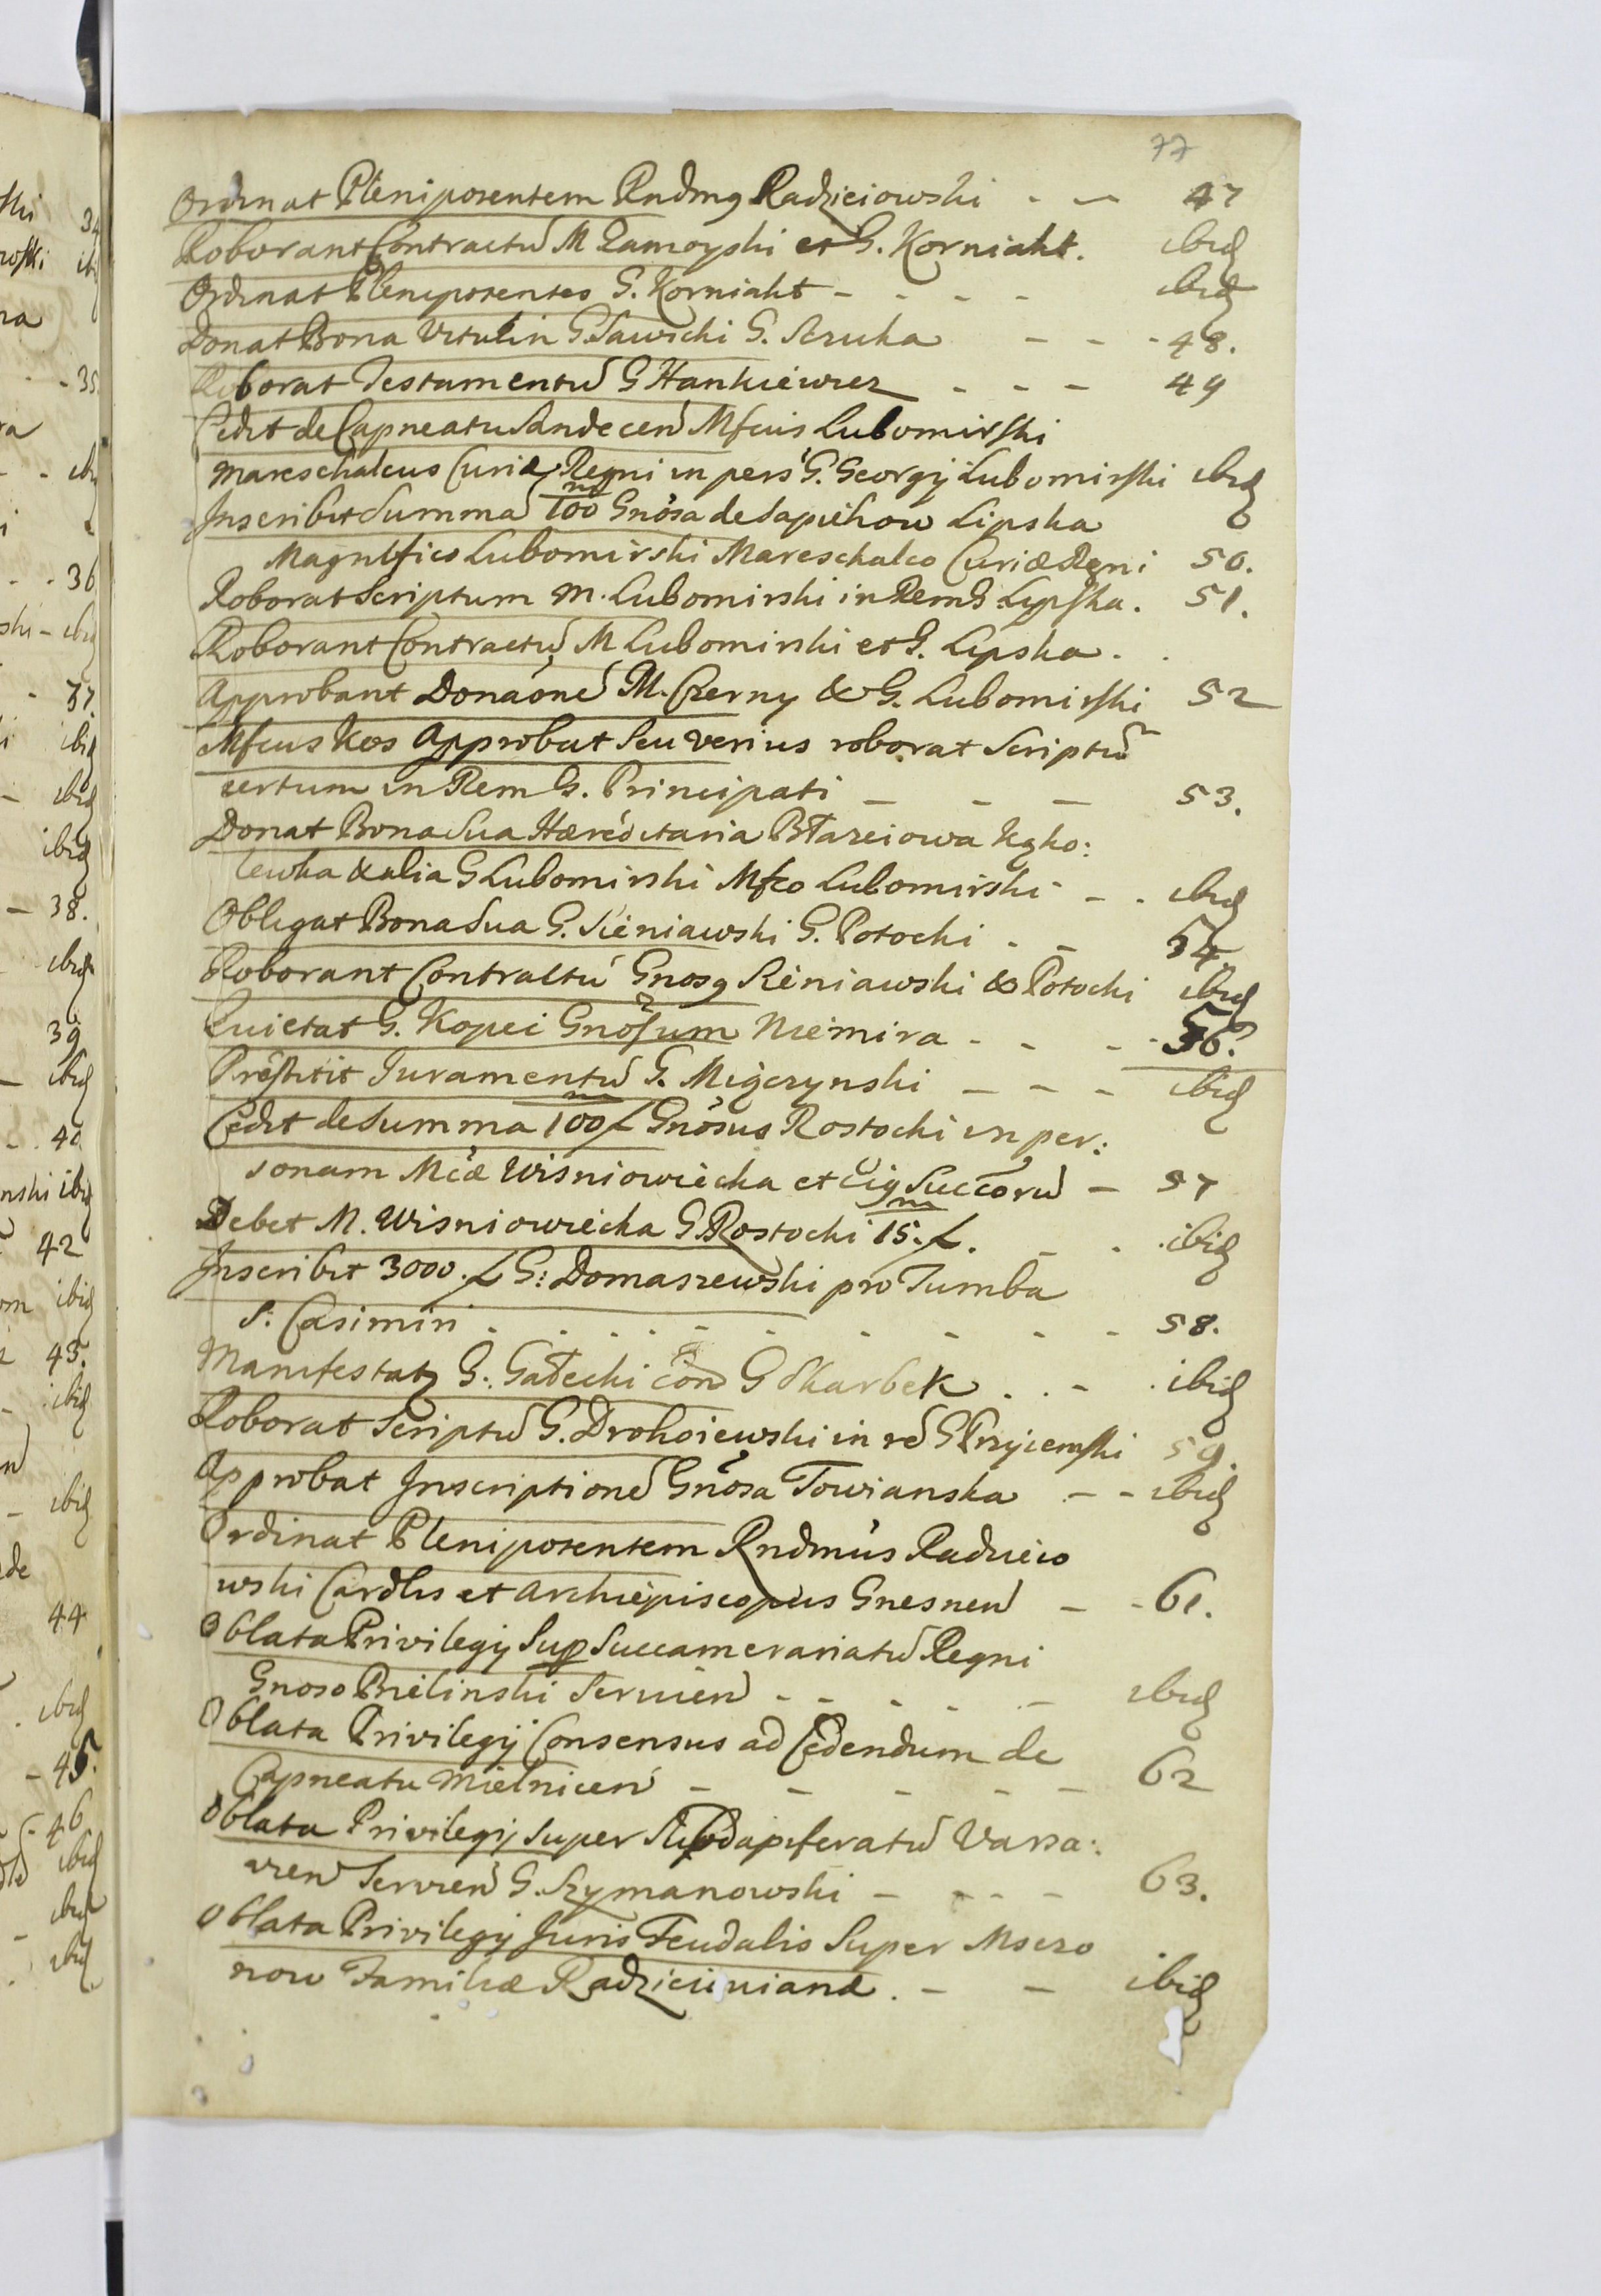 77
Ordinat Plenipotentem Rndmq Radzieiowski - - 47
Roborant Contractũ M Zamoyski et G. Korniakt. ibid
Ordinat Plenipotentes G. Korniakt - - - - ibid
Donat Bona Vitulin G Sawicki G. Szuka - - - 48.
Roborat Testamentũ G Hankiewicz - - - 49
Cedit de Capneatu Sandecen̄ Mfcus Lubomirski
Mareschalcus Curiæ Regni in pers G. Georgij Lubomirski ibid
Inscribit Summã 100 m Gnosa de Sapiehow Lipska
Magnifico Lubomirski Mareschalco Curiæ Regni 50.
Roborat Scriptum M. Lubomirski in Rem G Lypska. 51.
Roborant Contractũ M Lubomirski et G. Lipska. .
Approbant Donaõnẽ M. Czerny & G. Lubomirski 52
Mfcus Kos Approbat Seu verius roborat Scriptũ
certum in Rem G. Principati - - - 53.
Donat Bona Sua Hæreditaria Błazeiowa Kąko:
lewka & alia G Lubomirski Mfco Lubomirski - - ibid
Obligat Bona Sua G. Sieniawski G. Potocki - - 54.
Roborant Contractũ Gnosq Sieniawski & Potocki ibid
Quietat G. Kopci Gnosum Niemira - - - 56.
Præstitit Iuramentũ G. Miączynski - - - ibid
Cedit de Summa 100 m f Gnosus Rostocki in per:
sonam Mcæ Wisniowiecka et Eiq Succorũ - 57
Debet M. Wisniowiecka G Rostocki 15 m f. - - ibid
Inscribit 3000. f G: Domaszewski pro Tumba
S. Casimiri - - - - - - - - 58.
Manifestatq G. Gałecki con̄ G Skarbek . . - ibid
Roborat Scriptũ G. Drohoiewski in rẽ G Przyiemski 59.
Approbat Inscriptionẽ Gnosa Towianska - - ibid
Ordinat Plenipotentem Rndmus Radzieio
wski Cardlis et Archiepiscopus Gnesnen̄ - - 61.
Oblata Privilegij Sup Succamerariatũ Regni
Gnoso Bielinski Servien̄ - - - - - ibid
Oblata Privilegij Consensus ad Cedendum de
Capneatu Mielnicen̄ - - - - - 62
Oblata Privilegij super Subdapiferatũ Varsa:
vien̄ Servien̄ G. Szymanowski - - - - 63.
Oblata Privilegij Juris Feudalis Super Mszczo
now Familiæ Radzieiewianæ. - - ibid